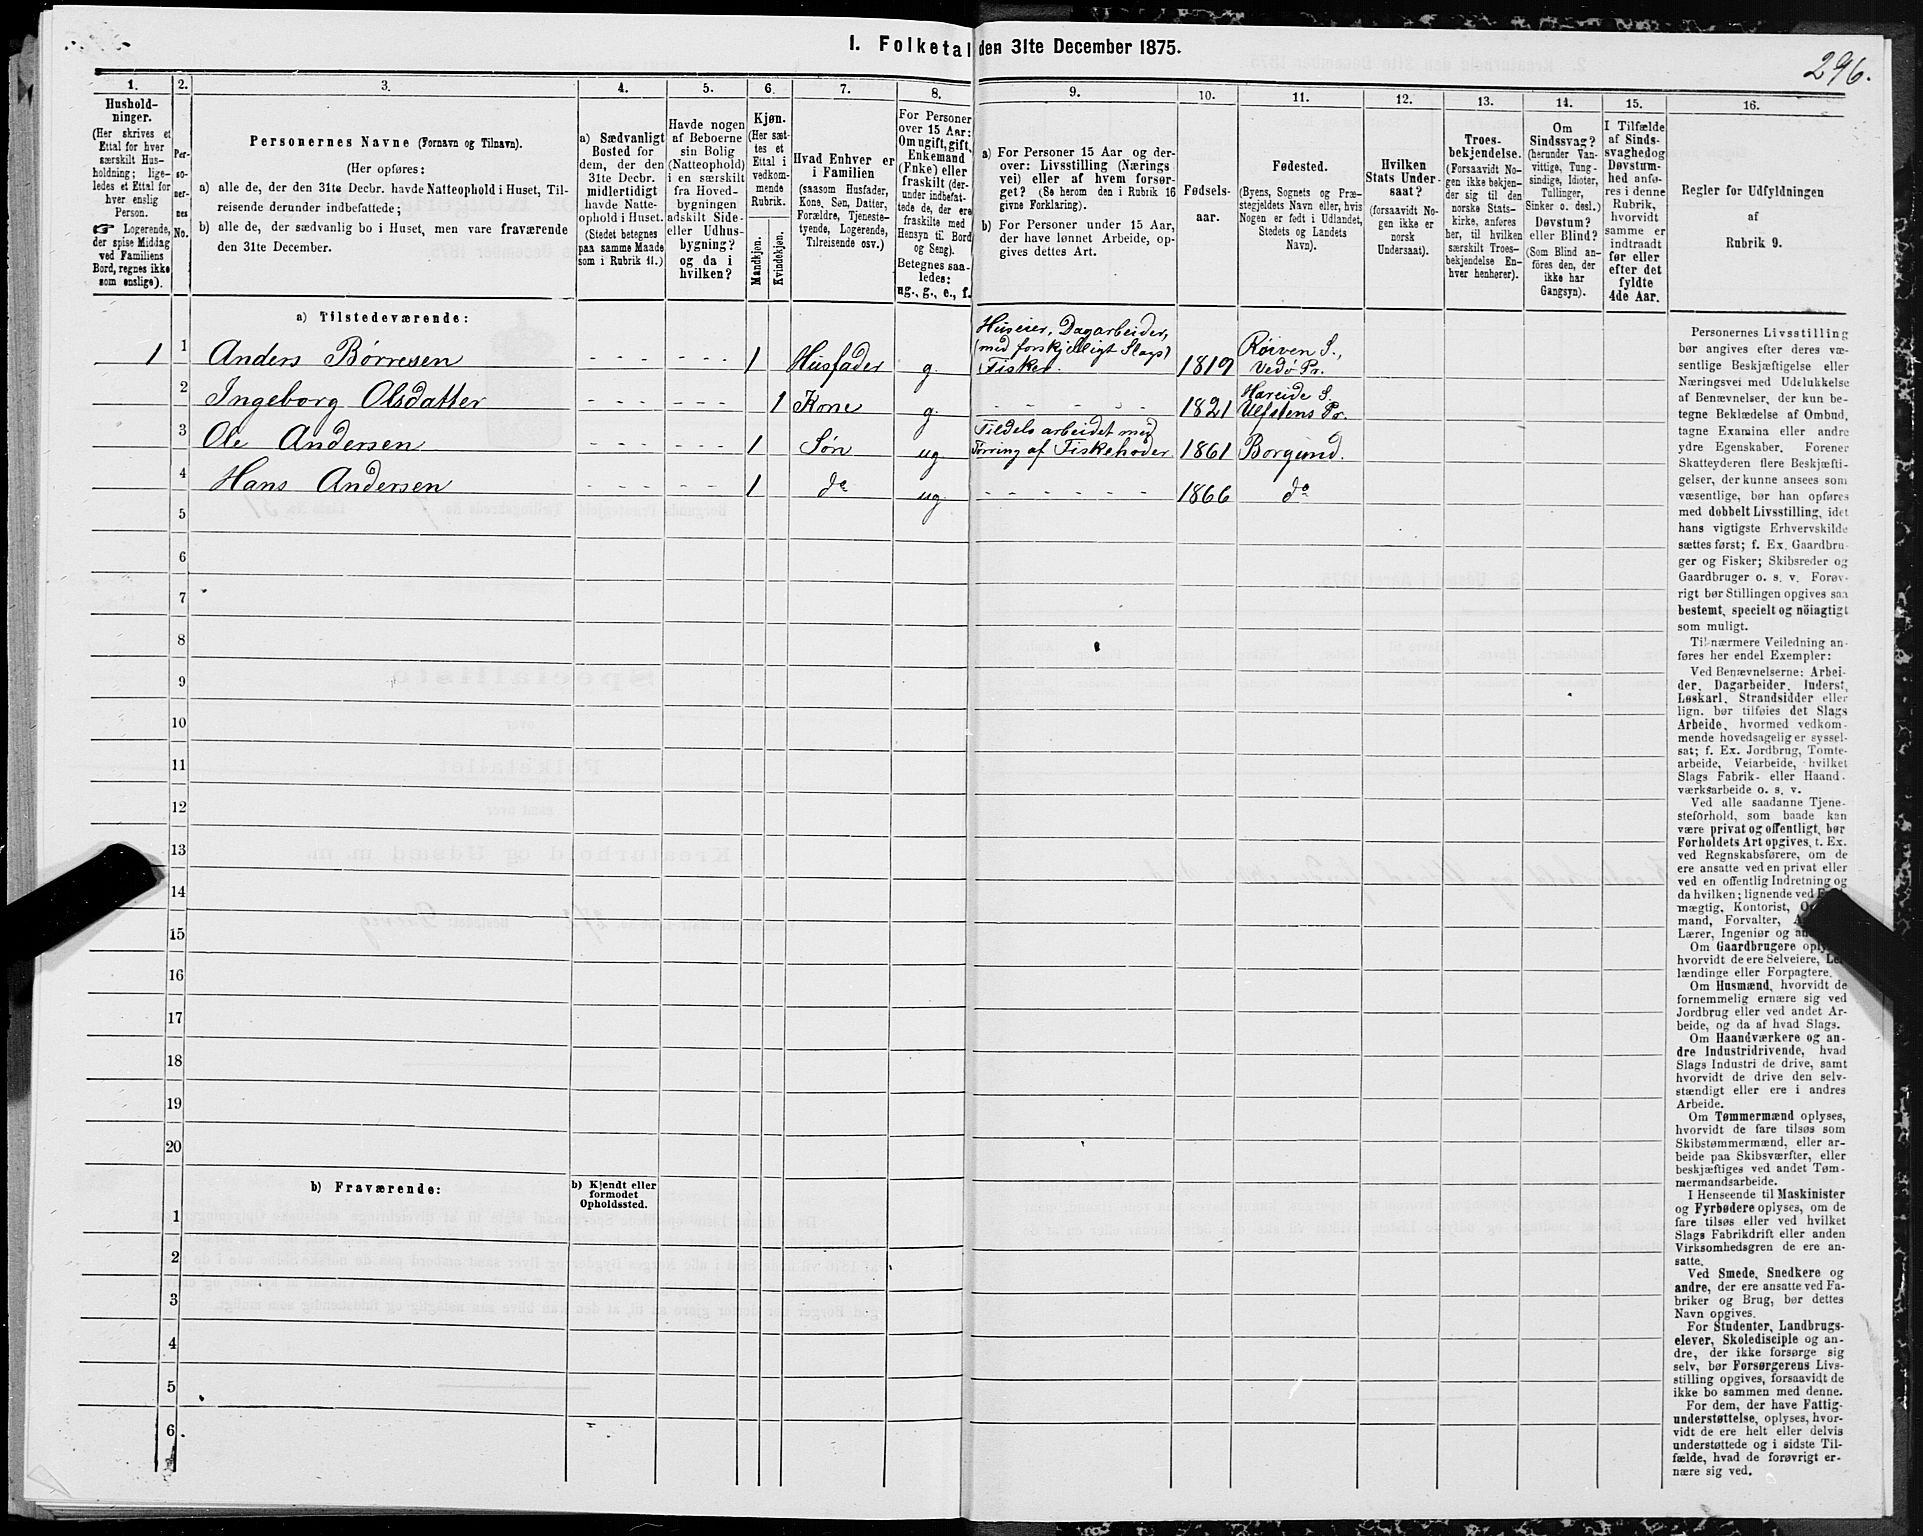 I. Folketal den 31te December 1875.
296.
1.
Hushold-
ninger.
(Her skrives et
Ettal for hver
særskilt Hus-
holdning; lige-
ledes et Ettal for
hver enslig
Person.
☞ Logerende,
der spise Middag
ved Familiens
Bord, regnes ikke
som enslige).
2.
Per-
so-
ner-
nes
No.
3.
Personernes Navne (Fornavn og Tilnavn).
(Her opføres:
a) alle de, der den 31te Decbr. havde Natteophold i Huset, Til-
reisende derunder indbefattede;
b) alle de, der sædvanlig bo i Huset, men vare fraværende
den 31te December.
4.
a) Sædvanligt
Bosted for
dem, der den
31te Decbr.
midlertidigt
havde Natte-
ophold i Huset.
(Stedet betegnes
paa samme Maade
som i Rubrik 11.)
5.
Havde nogen
af Beboerne
sin Bolig
(Natteophold)
i en særskilt
fra Hoved-
bygningen
adskilt Side-
eller Udhus-
bygning?
og da i
hvilken?
6.
Kjøn.
(Her sæt-
tes et
Ettal i
vedkom-
mende
Rubrik.
Mandkjøn.
Kvindekjøn.
7.
Hvad Enhver er
i Familien
(saasom Husfader,
Kone, Søn, Datter,
Forældre, Tjeneste-
tyende, Logerende,
Tilreisende osv.)
8.
For Personer
over 15 Aar:
Om ugift, gift,
Enkemand
(Enke) eller
fraskilt (der-
under indbefat-
tede de, der ere
fraskilte med
Hensyn til Bord
og Seng).
Betegnes saa-
ledes:
ug., g., e., f.
9.
a) For Personer 15 Aar og der-
over: Livsstilling (Nærings
vei) eller af hvem forsør-
get? (Se herom den i Rubrik 16
givne Forklaring).
b) For Personer under 15 Aar,
der have lønnet Arbeide, op-
gives dettes Art.
10.
Fødsels-
aar.
11.
Fødested.
(Byens, Sognets og Præ-
stegjeldets Navn eller, hvis
Nogen er født i Udlandet,
Stedets og Landets
Navn).
12.
Hvilken
Stats Under-
saat?
(forsaavidt No-
gen ikke er
norsk
Undersaat).
13.
Troes-
bekjendelse.
(Forsaavidt No-
gen ikke bekjen-
der sig til den
norske Stats-
kirke, anføres
her, til hvilken
særskilt Troes-
bekjendelse En-
hver henhører).
14.
Om
Sindssvag?
(herunder Van-
vittige, Tung-
sindige, Idioter,
Tullinger,
Sinker o. desl.)
Døvstum?
eller Blind?
(Som Blind an-
føres den, der
ikke har
Gangsyn).
15.
I Tilfælde
af Sinds-
svaghed og
Døvstum-
hed anfø-
res i denne
Rubrik,
hvorvidt
samme er
indtraadt
før eller
efter det
fyldte
4de Aar.
16.
Regler for Udfyldningen
af
Rubrik 9.
a) Tilstedeværende:
1 1 Anders Børresen - - - - - - - 1 Husfader g. Huseier, Dagarbeider,
(med forskjelligt Slags)
Fisker. 1819 Røiven S.,
Vedø Pr.
2 Ingeborg Olsdatter - - - - - - - 1 Kone g. - - - - - 1821 Hareide S.
Ulfstens Pr.
3 Ole Andersen - - - - - - - 1 Søn ug Tildels arbeidet med
Tørring af Fiskehoder 1861 Borgund.
4 Hans Andersen - - - - - - 1 do ug - - - - - - 1866 do
5
6
7
8
9
10
11
12
13
14
15
16
17
18
19
20
b) Fraværende:
b) Kjendt eller
formodet
Opholdssted.
1
2
3
4
5
6
Personernes Livsstilling
bør angives efter deres væ-
sentlige Beskjæftigelse eller
Næringsvei med Udelukkelse
af Benævnelser, der kun be-
tegne Beklædelse af Ombud,
tagne Examina eller andre
ydre Egenskaber. Forener
Skatteyderen flere Beskjæfti-
gelser, der kunne ansees som
væsentlige, bør han opføres
med dobbelt Livsstilling, idet
hans vigtigste Erhvervskilde
sættes først; f. Ex. Gaardbru-
ger og Fisker; Skibsreder og
Gaardbruger o. s. v. Forøv-
rigt bør Stillingen opgives saa
bestemt, specielt og nøiagtigt
som muligt.
Til nærmere Veiledning an-
føres her endel Exempler:
Ved Benævnelserne: Arbei-
der, Dagarbeider, Inderst,
Løskarl, Strandsidder eller
lign. bør tilføies det Slags
Arbeide, hvormed vedkom-
mende hovedsagelig er syssel-
sat; f. Ex. Jordbrug, Tomte-
arbeide, Veiarbeide, hvilket
Slags Fabrik- eller Haand-
værksarbeide o. s. v.
Ved alle saadanne Tjene-
steforhold, som baade kan
være privat og offentligt, bør
Forholdets Art opgives, f. Ex.
ved Regnskabsførere, om de
ere ansatte ved en privat eller
ved en offentlig Indretning og
da hvilken; lignende ved
mægtig, Kontorist,
mand, Forvalter,
Lærer, Ingeniør og
Om Gaardbrugere
hvorvidt de ere Selveiere,
lændinge eller Forpagtere.
Om Husmænd, hvorvidt de
fornemmelig ernære sig ved
Jordbrug eller ved andet Ar-
beide, og da af hvad Slags.
Om Haandværkere og an-
dre Industridrivende, hvad
Slags Industri de drive, samt
hvorvidt de drive den selv-
stændigt eller ere i andres
Arbeide.
Om Tømmermænd oplyses,
hvorvidt de fare tilsøs som
Skibstømmermænd, eller ar-
beide paa Skibsværfter, eller
beskjæftiges ved andet Tøm-
mermandsarbeide.
I Henseende til Maskinister
og Fyrbødere oplyses, om de
fare tilsøs eller ved hvilket
Slags Fabrikdrift eller anden
Virksomhedsgren de ere an-
satte.
Ved Smede, Snedkere og
andre, der ere ansatte ved Fa-
briker og Brug, bør dettes
Navn opgives.
For Studenter, Landbrugs-
elever, Skoledisciple og an-
dre, der ikke forsørge sig
selv, bør Forsørgerens Livs-
stilling opgives, forsaavidt de
ikke bo sammen med denne.
For dem, der have Fattig-
understøttelse, oplyses, hvor-
vidt de ere helt eller delvis
understøttede og i sidste Til-
fælde, hvad de forøvrigt er-
nære sig ved.